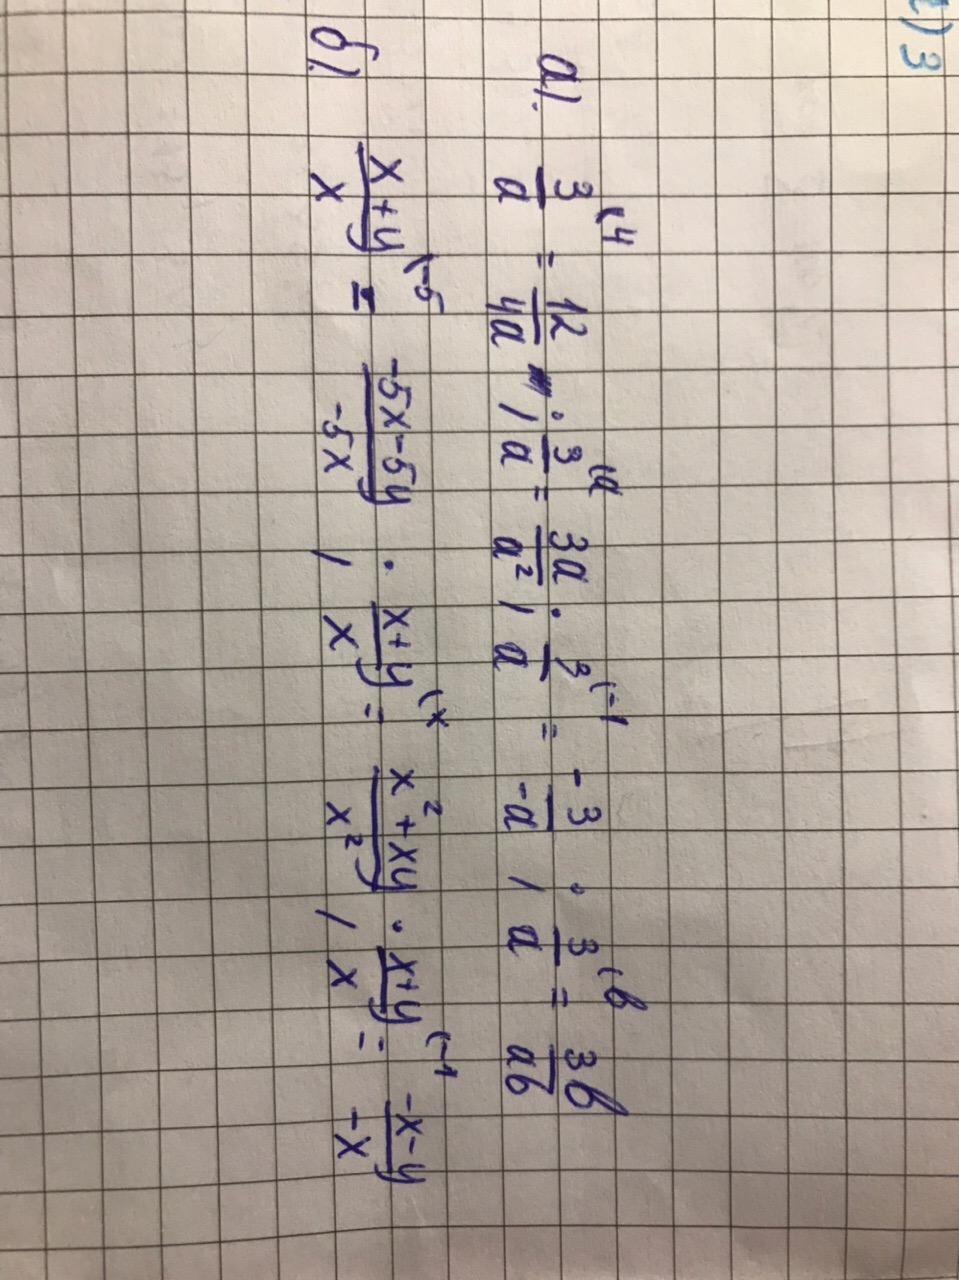 3
а). 3/a (4 = 12/4a ; 3/a (a = 3a/a² ; 3/a (-1 = -3/-a ; 3/a (b = 3b/ab
б). x+y/x (-5 = -5x-5y/-5x ; x+y/x (x = x²+xy/x² ; x+y/x (-1 = -x-y/-x